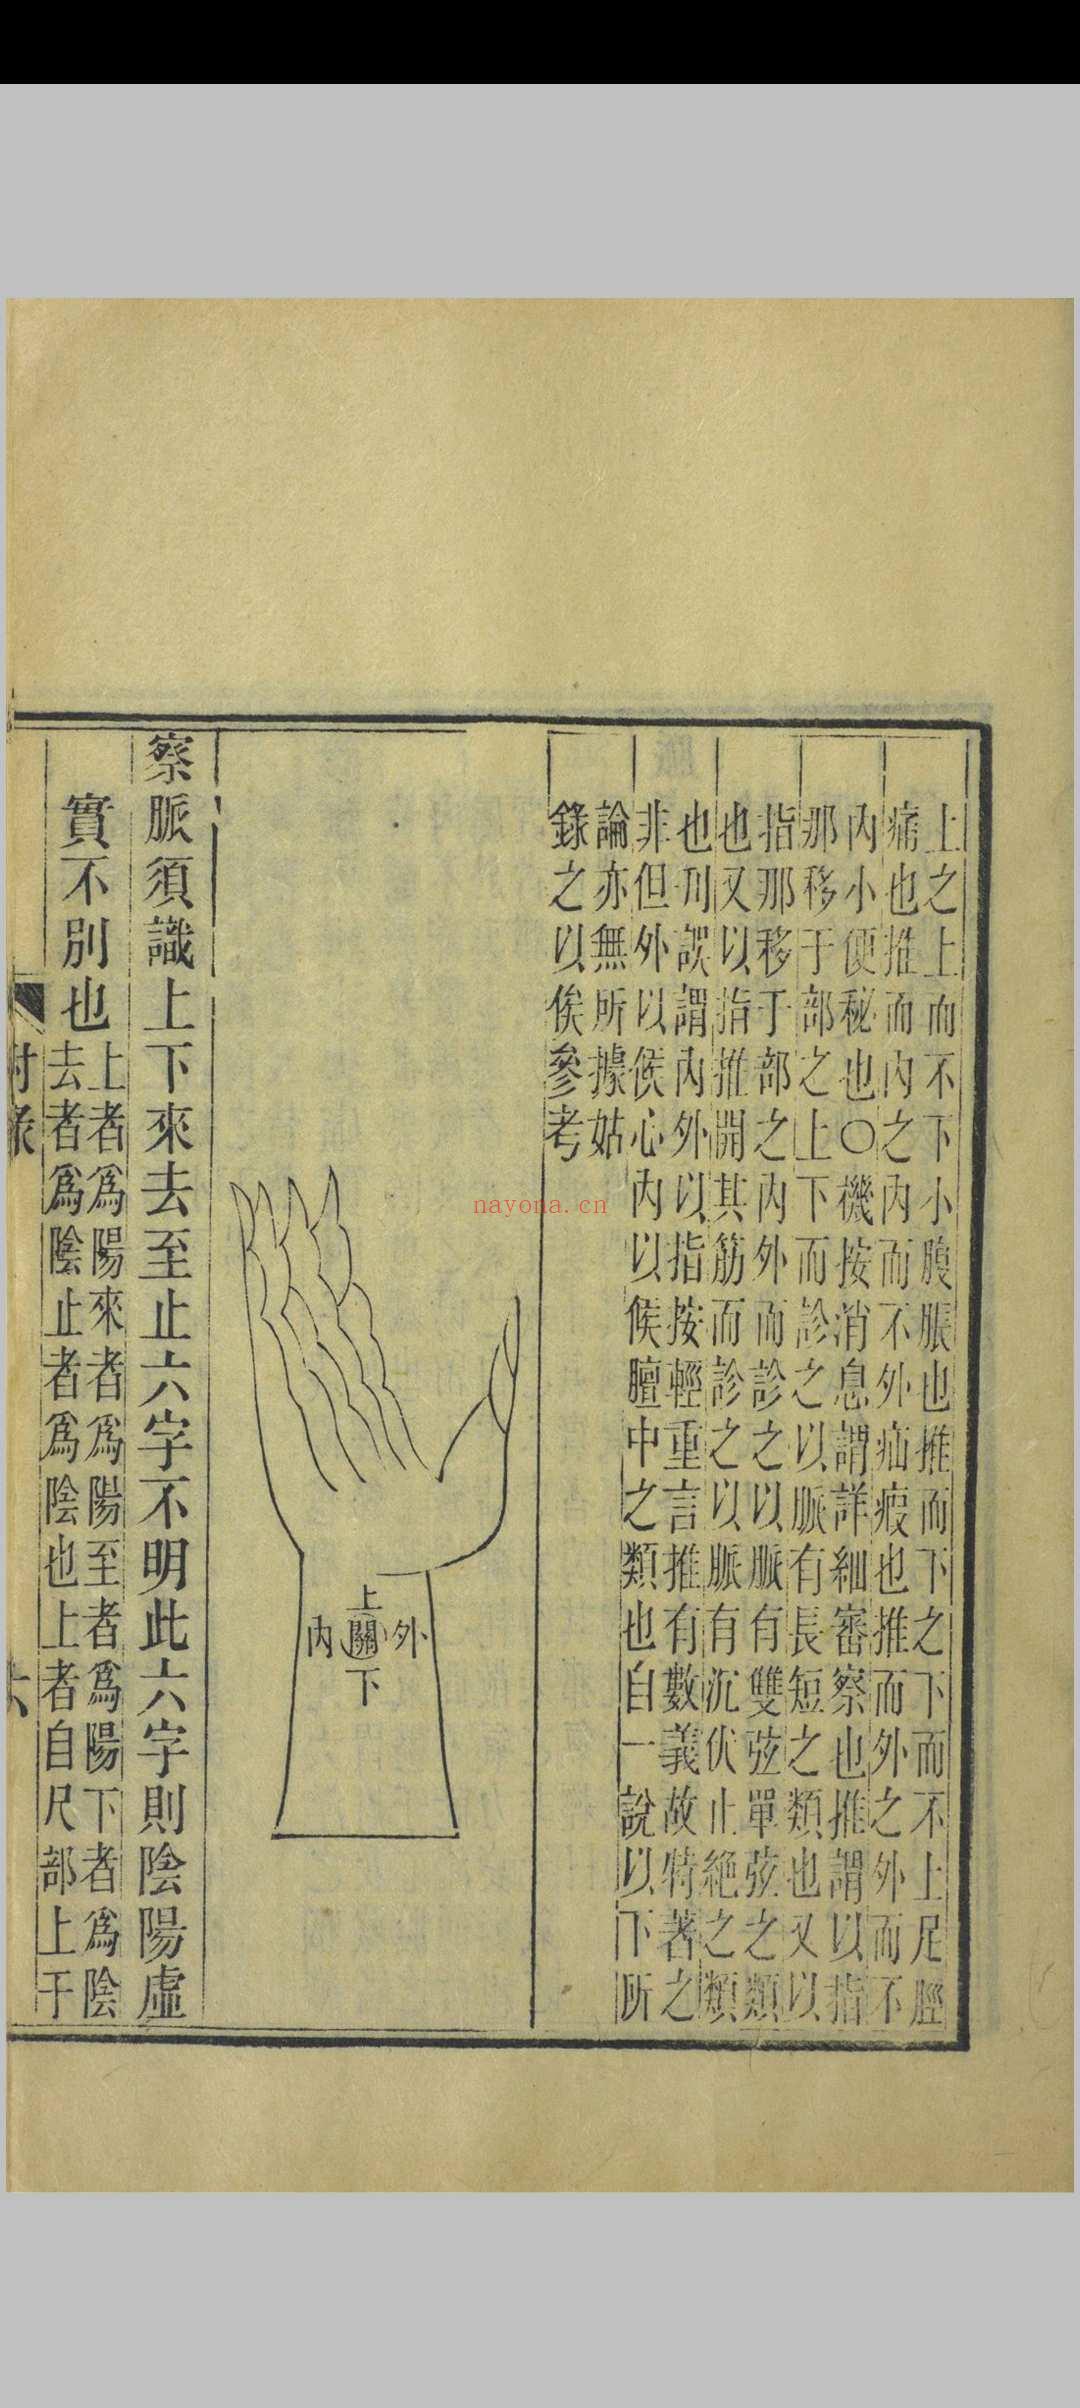 上之上而不下小腹脹也推而下之下而不上足脛
痛也推而內之內而不外疝瘕也推而外之外而不
內小便秘也〇機按消息謂詳細審察也推謂以指
那移于部之上下而診之以脈有長短之類也又以
指那移于部之內外而診之以脈有雙弦單弦之類
也又以指推開其筋而診之以脈有沉伏止絶之類
也刋誤謂內外以指按輕重言推有數義故特著之
非但外以候心內以候膻中之類也自一說以下所
論亦無所據姑
錄之以俟參考
上
內 關 外
下
察脈須識上下來去至止六字不明此六字則陰陽虛
實不別也
上者爲陽來者爲陽至者爲陽下者爲陰
去者爲陰止者爲陰也上者自尺部上于
附录
六
nayona.cn